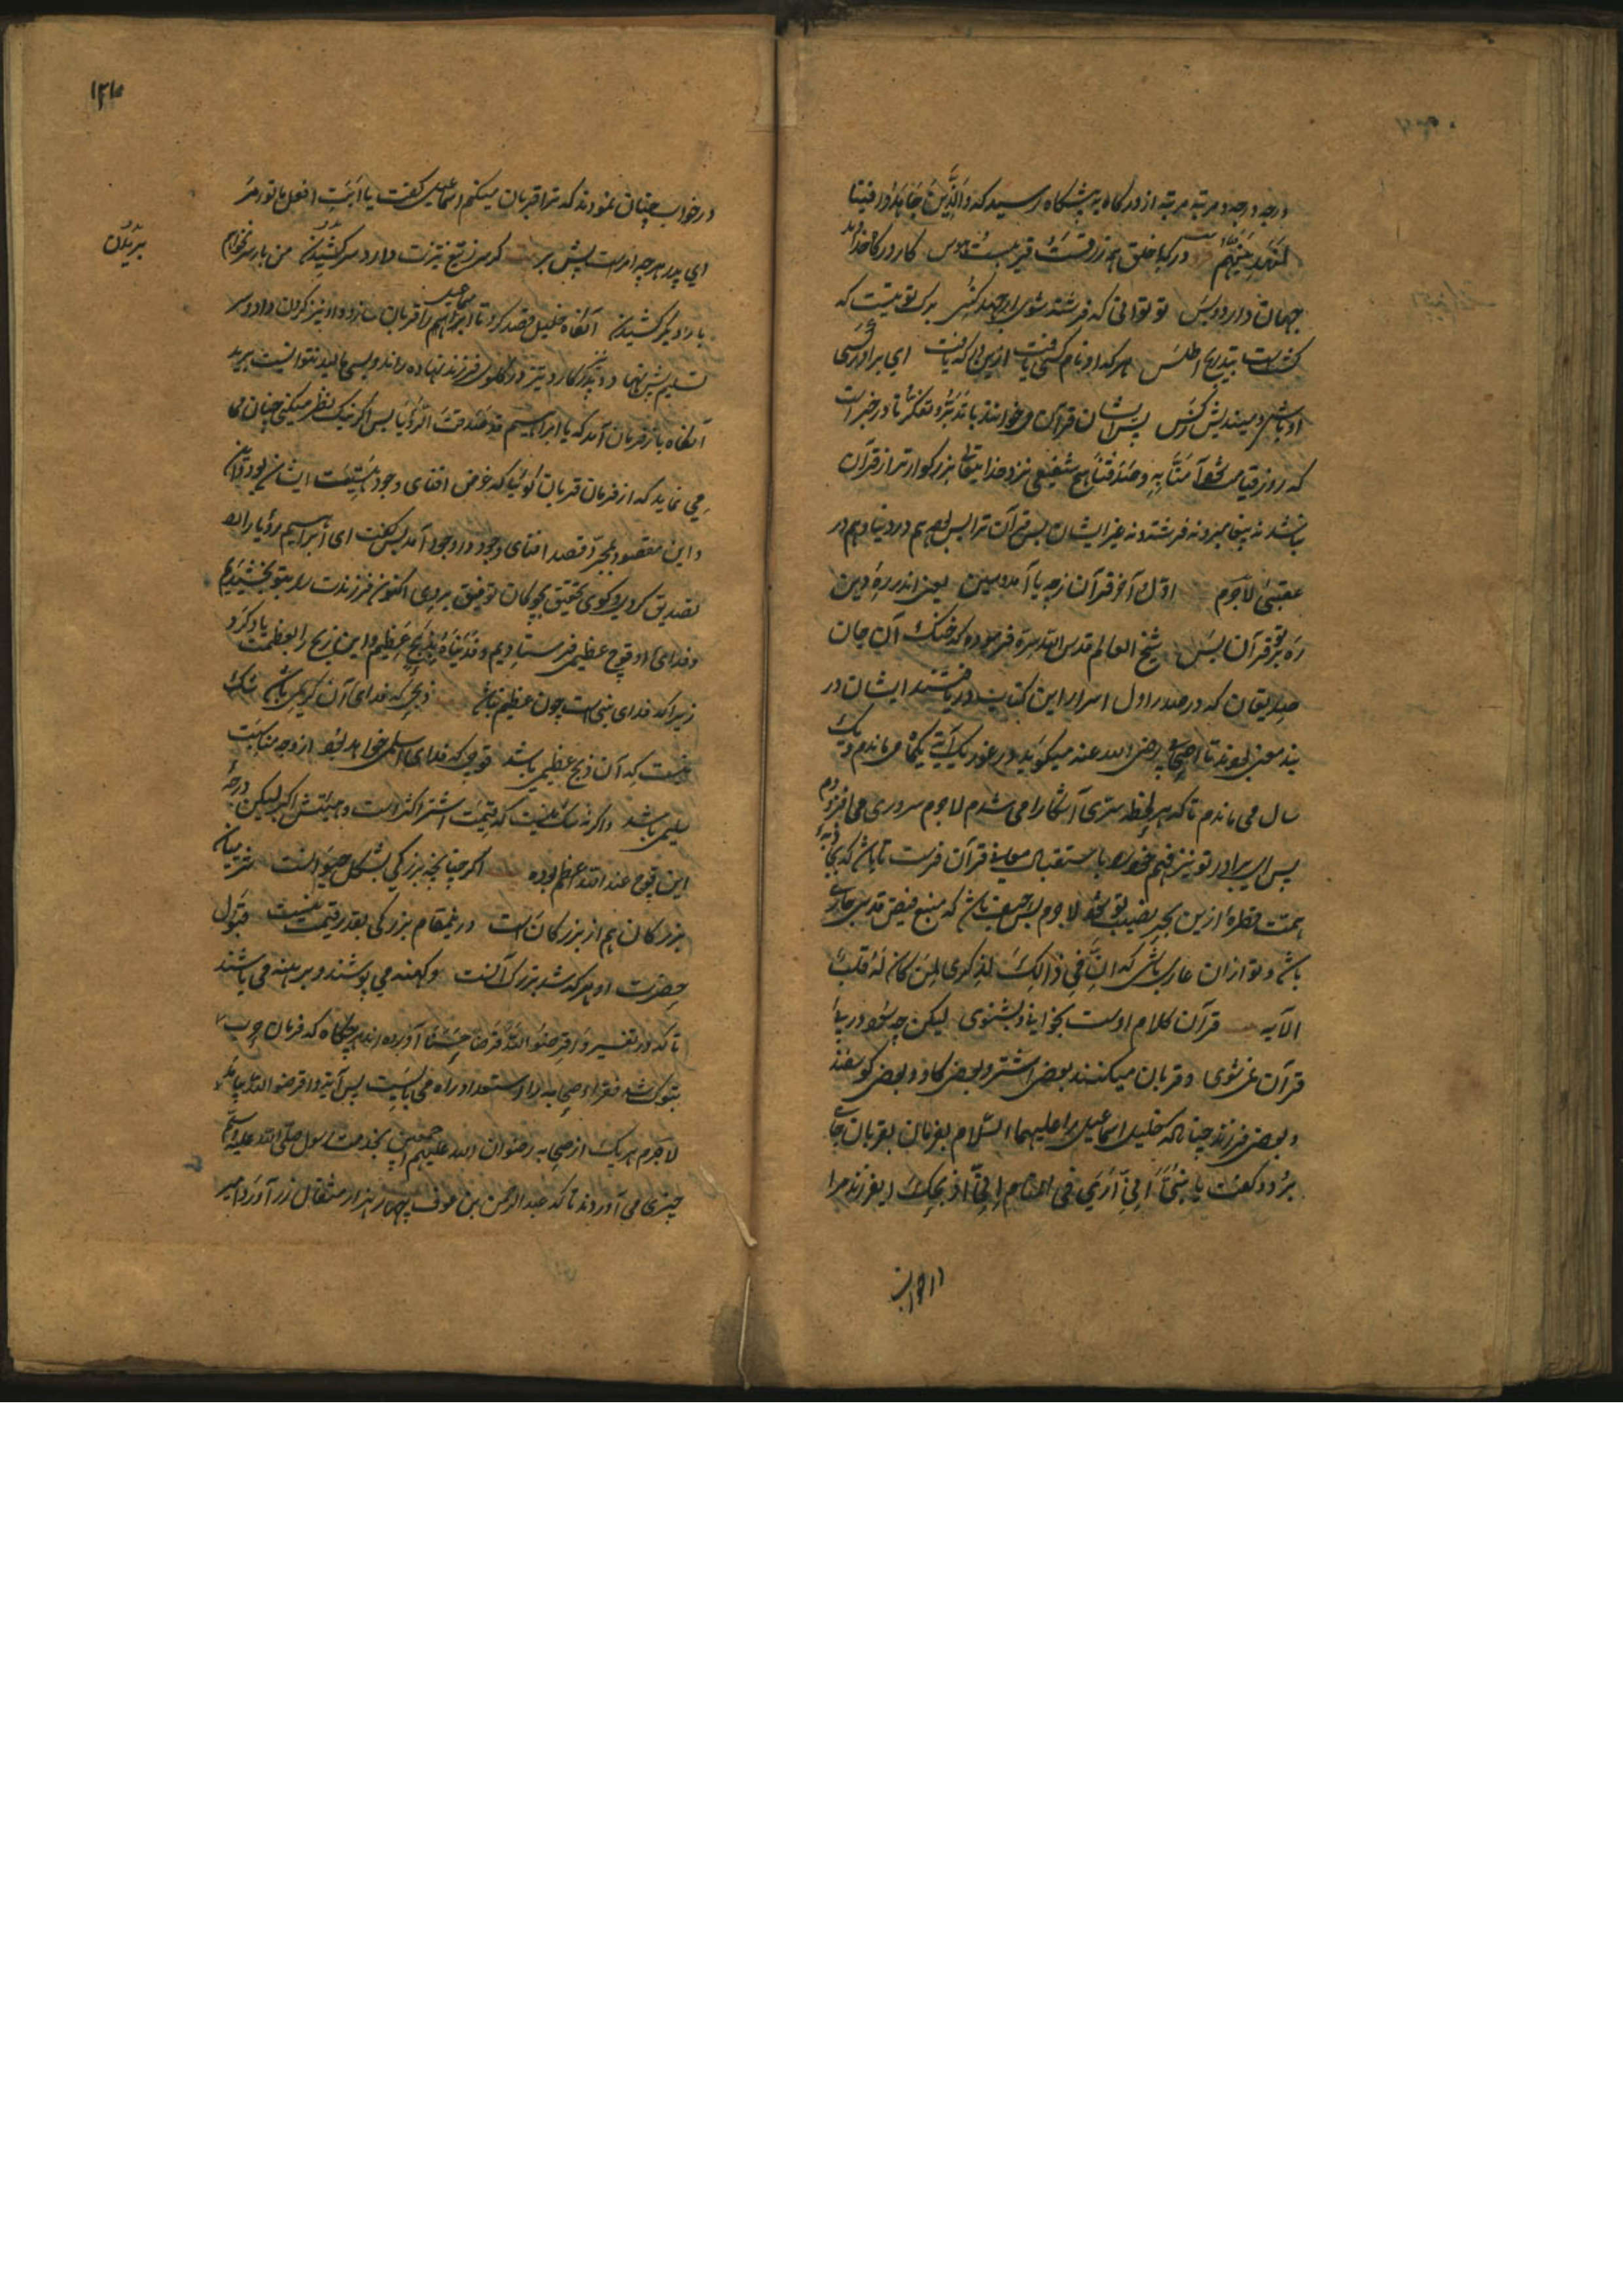 درجه درجه و مرتبه مرتبه از درگاه به پیشگاه رسید که وَالَّذِینَ جَاهَدُوا فِینَا
لَنَهْدِیَنَّهُمْ در کبا خلق همه زرقست فریبست هوس کار درگاه خداوند
جهان دارد و بس تو توانی که فرشته شوی ار جهد کنی برک توتیست که
کشتست بتدریج اطلس هر که او نام کسی یافت ازین درکه یافت ای برادر کسی
او باش و میندیش زکس پس ایشان قرآن میخوانند با تدبر و تفکر تا در خبر است
که روز قیامت هیچ شفیعی نزد خدایتعالی بزرگوارتر از قرآن
نباشد نه پیغامبر و نه فرشته و نه غیر ایشان پس قرآن ترا بس بود هم در دنیا و هم در
عقبی لاجرم اول و آخر قرآن زچه با آمد و سین یعنی اندر ره دین
رهبر تو قرآن بس شیخ العالم قدس الله سره فرموده که خنک آن جان
صدیقان که در صدر اول اسرار این کتاب دریافتند ایشان در
بند معنی بودند تا اصحاب رضی الله عنه میکوید در غور یک آیتی یکماه میماندم و یک
سال می ماندم تا که هر لحظه سری آشکارا می شدم لاجرم سروری می افزودم
پس ای برادر تو نیز فهم خود را باستقبال معانی قرآن فرست تا باشد که بجاذبه
همت قطره ازین بحر نصیب تو شود لاجرم بس حیف باشد که منبع فیض قدس جاری
باشد و تو ازان عاری باشی که اِنَّ فِی ذَالِکَ لَذِکْرَی لِمَنْ کَانَ لَهُ قَلْبٌ
الآیه قرآن کلام اوست بخوانی و بشنوی لیکن چه سود دریای
قرآن نمی شوی و قربان میکنند بعضی اشتر و بعضی کاو و بعضی کوسفند
و بعضی فرزند چنانکه خلیل اسماعیل را علیهما السلام بفرمان بقربان جای
برد و گفت یا بُنَیَّ اِنِّی اَرَی فِی المَنَامِ اَنِّی اَذْبَحُکَ ایفرزند مرا
در خواب
۱۳۸
در خواب چنان نمودند که ترا قربان میکنم اسماعیل گفت یا اَبَتِ افعل ما تؤمر
ای پدر هر چه امرست پیش بر کر سر تیغ تیزت دارد سر کشیدن من باری نخواهم
بریدن
بار دیگر کشیدن آنگاه خلیل قصد کرد تا اسماعیل را قربان سازد و او نیز گردن داد و سر
تسلیم پیش نهاد و پدر کارد تیز در گلوی فرزند نهاده راند و بسی مالید نتوانست برید
آنگاه باز فرمان آمد که یا ابراهیم قَد صَدَّقتَ الرُّؤیَا پس اگر نیک نظر میکنی چنان می
می نماید که از فرمان قربان گوئیا که غرض افنای وجود بشریت ایشان بود
و این مقصود بمجرد قصد افنای وجود در وجود آمد پس گفت ای ابراهیم رؤیا را
تصدیق کردی و گوی تحقیق بچوگان توفیق بردی اکنون فرزندت را بتو بخشیدم
و فدای او قوچ عظیم فرستادیم وَ فَدَیْنَاهُ بِذِبْحٍ عَظِیمٍ و این ذبح را بعظمت یاد کرد
زیرا که فدای نبی است چون عظیم نباشد ذبحی که فدای آن کریم باشد شک
نیست که آن ذبح عظیم باشد قوچی که فدای اسلم خواهد بود از وجه مناسبت
سلیمی باشد واگرنه شک نیست که قیمت اشتر اکثر است و هیئتش اکبر لیکن درجه
این قوچ عند الله اعظم بوده اگر چنانچه بزرگی بشکل حیوانست
بزرگان هم از بزرگان است درینمقام بزرگی بقدر و قیمت نیست قبول
حضرت او هر که شد بزرگ آنست و کهنه می پوشند و برهنه می باشند
تا که در تفسیر وَاَقْرِضُوا اللهَ قَرْضًا حَسَنًا آورده اند هر چگاه که فرمان حرب
تبوک شد فقراء صحابه را استعداد راه می بایست پس آیة و اقرضوا الله بیامد
لاجرم هر یک از صحابه رضوان الله علیهم اجمعین بخدمت رسول صلی الله علیه وسلم
چیزی می آوردند تا که عبد الرحمن بن عوف چهار هزار مثقال زر آورد امیر